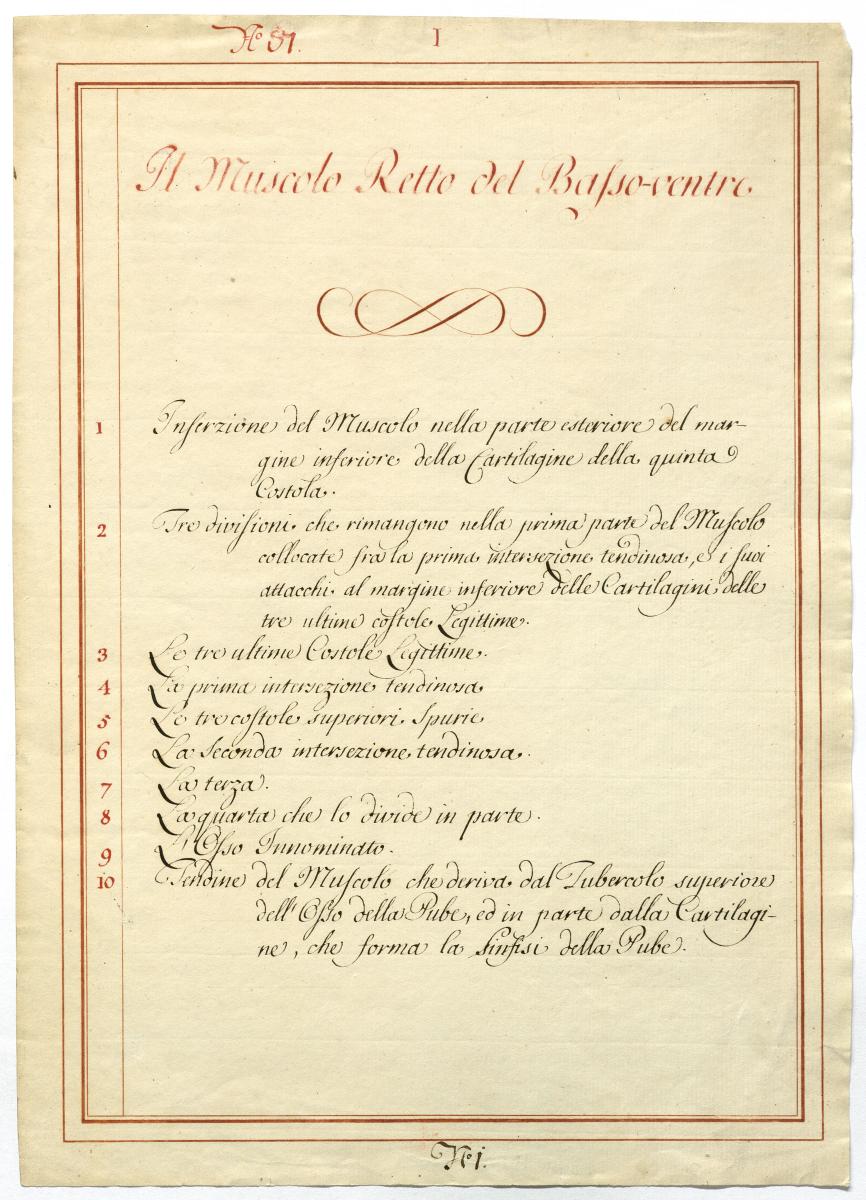 No 51.
I
Il Muscolo Retto del Baſso-ventre
1 Inserzione del Muscolo nella parte esteriore del mar-
gine inferiore della Cartilagine della quinta
Costola.
2 Tre diviſioni che rimangono nella prima parte del Muſcolo
collocate fra la prima intersezione tendinosa, e i ſuoi
attacchi al margine inferiore delle Cartilagini delle
tre ultime coſtole Legittime.
3 Le tre ultime Costole Legittime.
4 La prima intersezione tendinosa
5 Le tre coſtole superiori Spurie
6 La Seconda intersezione tendinosa.
7 La terza.
8 La quarta che lo divide in parte.
9 L'Oſso Innominato.
10 Tendine del Muſcolo che deriva dal Tubercolo superiore
dell'Oſso della Pube, ed in parte dalla Cartilagi-
ne, che forma la Sinfisi della Pube.
No 1.